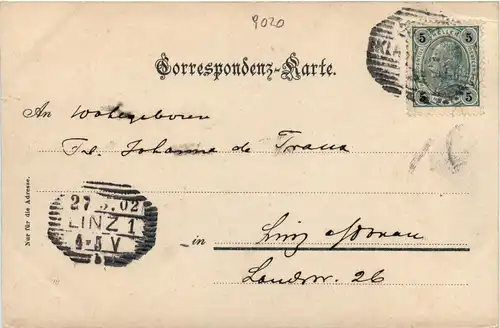 9020
5 HELLER 5
5 5
KLA
Correspondenz-Karte.
An Wohlgeboren
Frl. Johanna de
Nur für die Adresse.
27.3.02
LINZ 1
4-5 V
in Linz a/Donau
Landstr. 26